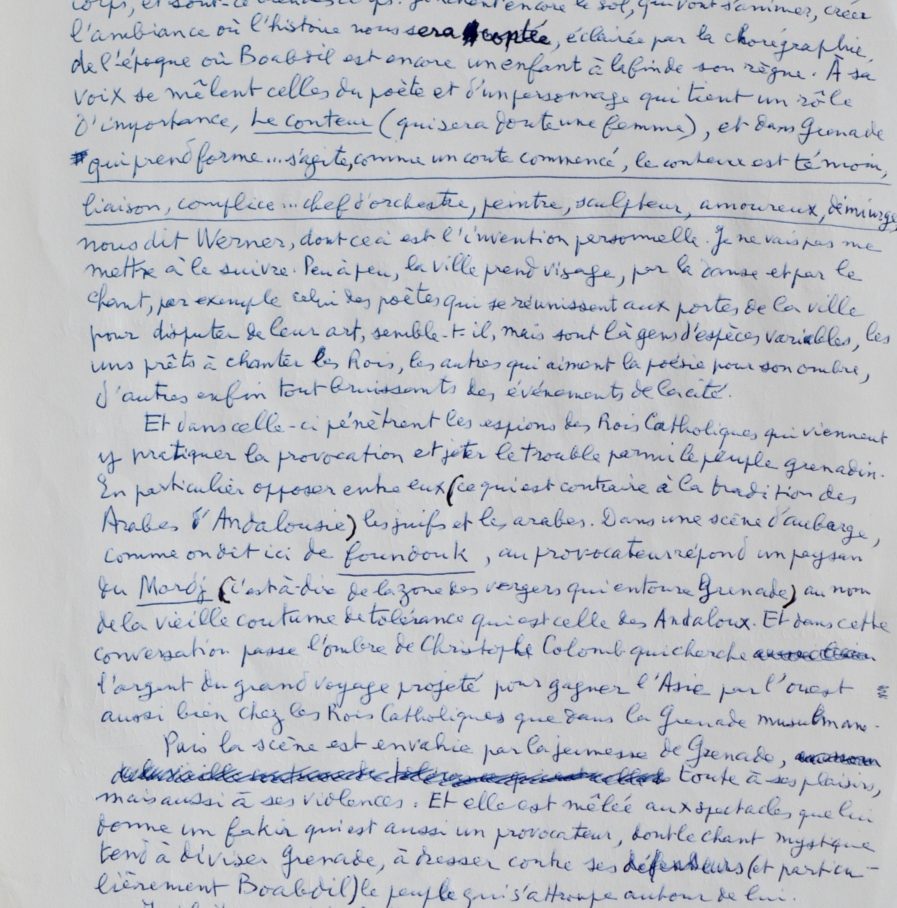 corps, et sont-ce encore le sol, qui vont s'animer, créer
l'ambiance où l'histoire nous sera contée, éclairée par la chorégraphie,
de l'époque où Boabdil est encore un enfant à la fin de son règne. À sa
voix se mêlent celles du poète et d'un personnage qui tient un rôle
d'importance, Le conteur (qui sera joute une femme), et dans Grenade
qui prend forme... s'agite, comme un conte commencé, le conteur est témoin,
liaison, complice... chef d'orchestre, peintre, sculpteur, amoureux, démiurge
nous dit Werner, dont ceci est l'invention personnelle. Je ne vais pas me
mettre à le suivre. Peu à peu, la ville prend visage, par la danse et par le
chant, par exemple celui des poètes qui se réunissent aux portes de la ville
pour disputer de leur art, semble-t-il, mais sont là gens d'espèces variables, les
uns prêts à chanter les Rois, les autres qui aiment la poésie pour son ombre,
d'autres enfin tout bruissants des événements de la cité.
Et dans celle-ci pénètrent les espions des Rois Catholiques qui viennent
y pratiquer la provocation et jeter le trouble parmi le peuple grenadin.
En particulier opposer entre eux (ce qui est contraire à la tradition des
Arabes d'Andalousie) les juifs et les arabes. Dans une scène d'auberge,
comme on dit ici de foundouk, au provocateur répond un paysan
du Mardj (c'est-à-dire de la zone des vergers qui entoure Grenade) au nom
de la vieille coutume de tolérance qui est celle des Andaloux. Et dans cette
conversation passe l'ombre de Christophe Colomb qui cherche
l'argent du grand voyage projeté pour gagner l'Asie par l'ouest
aussi bien chez les Rois Catholiques que dans la Grenade musulmane.
Puis la scène est envahie par la jeunesse de Grenade,
toute à ses plaisirs,
mais aussi à ses violences. Et elle est mêlée aux spectacles que lui
donne un fakir qui est aussi un provocateur, dont le chant mystique
tend à diviser Grenade, à dresser contre ses défenseurs (et particu-
lièrement Boabdil) le peuple qui s'attroupe autour de lui.